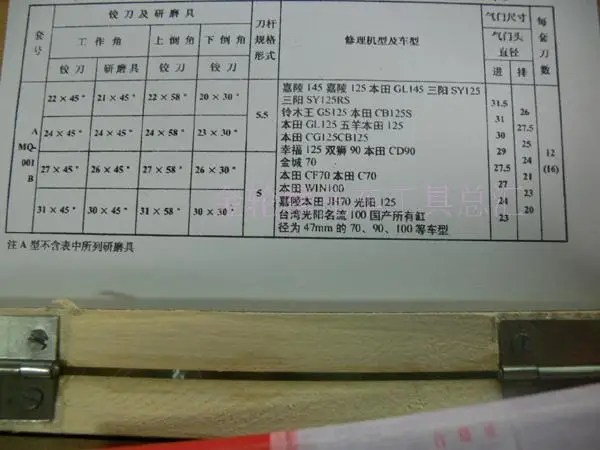 铰刀及研磨具 刀杆 气门尺寸 每
套 规格 修理机型及车型 气门头 套
号 工作角 上倒角 下倒角 形式 直径 刀
铰刀 研磨具 铰刀 铰刀 进 排 数
22×45° 21×45° 22×58° 20×30° 5.5 嘉陵 145 嘉陵 125 本田 GL145 三阳 SY125 31.5
三阳 SY125RS
铃木王 GS125 本田 CB125S 31 26
A 24×45° 24×45° 24×58° 23×30° 本田 GL125 五羊本田 125 26 27.5
本田 CG125CB125 30 25
MQ- 幸福 125 双狮 90 本田 CD90 29 24 12
001 27×45° 26×45° 27×58° 26×30° 5 金城 70 27.5 (16)
B 本田 CF70 本田 C70 27 21
本田 WIN100
31×45° 30×45° 31×58° 30×30° 嘉陵本田 JH70 光阳 125 24 20
台湾光阳名流 100 国产所有缸 23
径为 47mm 的 70、90、100 等车型
注 A 型不含表中所列研磨具